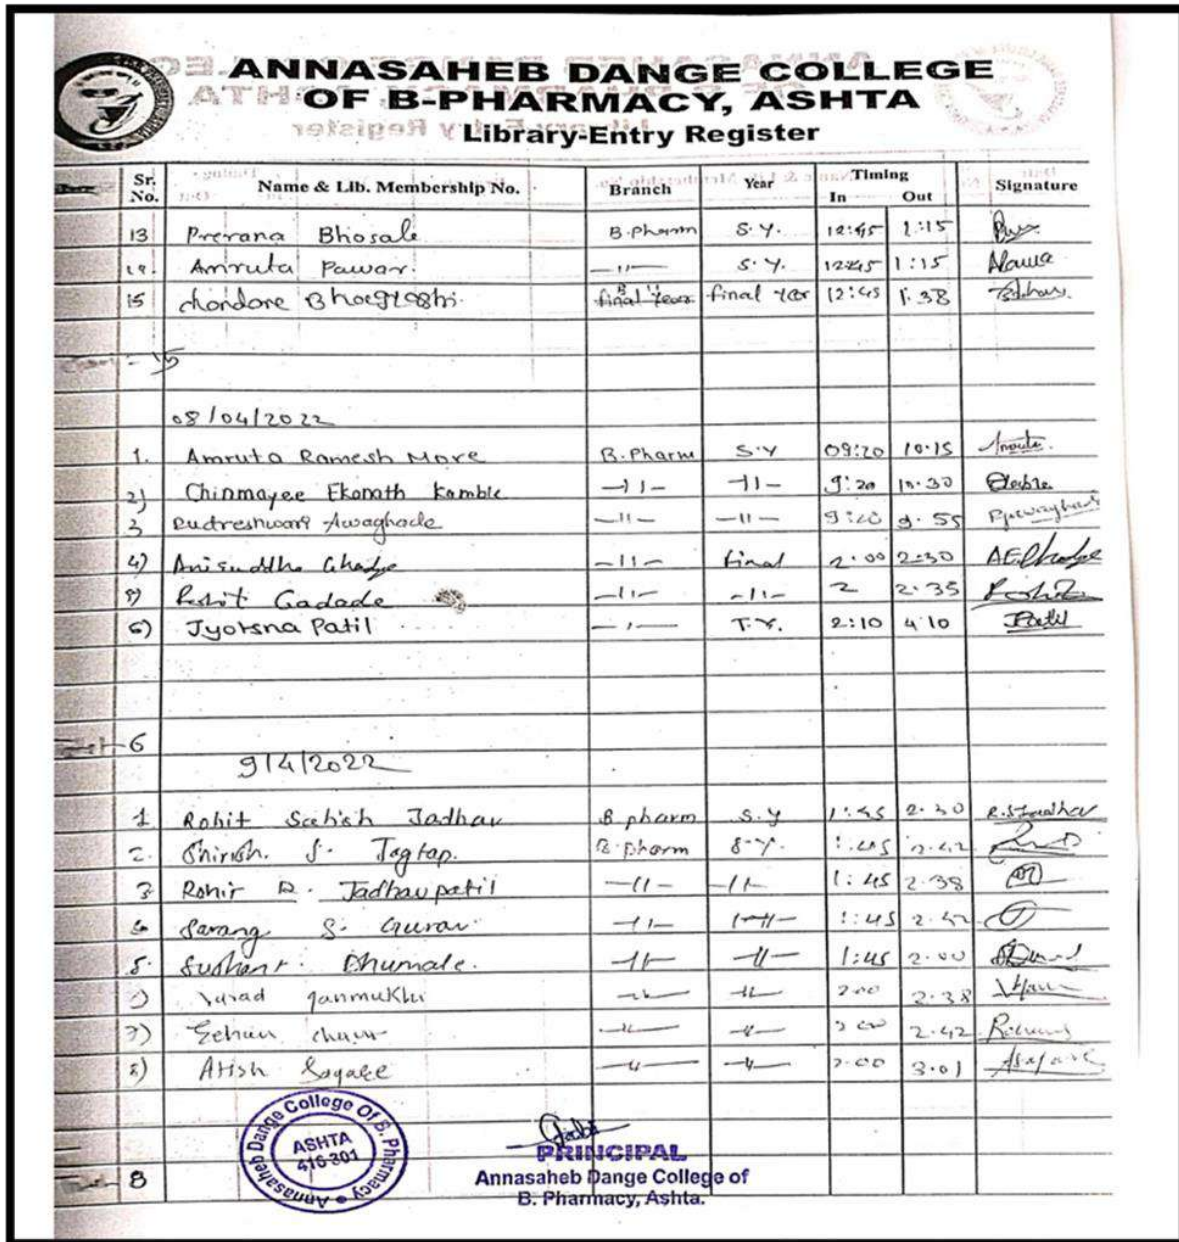 ANNASAHEB DANGE COLLEGE
OF B-PHARMACY, ASHTA
Library-Entry Register
Sr. No. Name & Lib. Membership No. Branch Year Timing In Out Signature
13 Prerana Bhosale B.Pharm S.Y. 12:45 1:15
14. Amruta Pawar. -11- S.Y. 12:45 1:15
15 chondore final Year final Year 12:45 1:38
= 15
08/04/2022
1. Amruta Ramesh More B.Pharm S.Y 09:20 10.15
2) Chinmayee Ekanath Kamble -11- -11- 9:20 10.30
3 Rudreshwari Awaghade -11- -11- 9:20 9.55
4) Aniruddha Ghadge -11- final 2.00 2:30
5) Rohit Gadade -11- -11- 2 2.35
6) Jyotsna Patil -1- T.Y. 2:10 4.10 Patil
6
9/4/2022
1 Rohit Satish Jadhav B.pharm S.y 1:45 2.30 R.S.Jadhav
2. Shirish. S. Jagtap. B.pharm S.Y. 1:45 2.42
3 Rohit R. Jadhavpatil -11- -11- 1:45 2.38
4 Sarang S. Gurav -11- -11- 1:45 2.42
5. Sushant. Dhumale. -11- -11- 1:45 2.00
-11- -11- 2.00 2.38
7) -11- -11- 2.00 2.42
8) Atish -11- -11- 2.00 3.01
8
Annasaheb Dange College Of B. Pharmacy
ASHTA
416-301
PRINCIPAL
Annasaheb Dange College of
B. Pharmacy, Ashta.